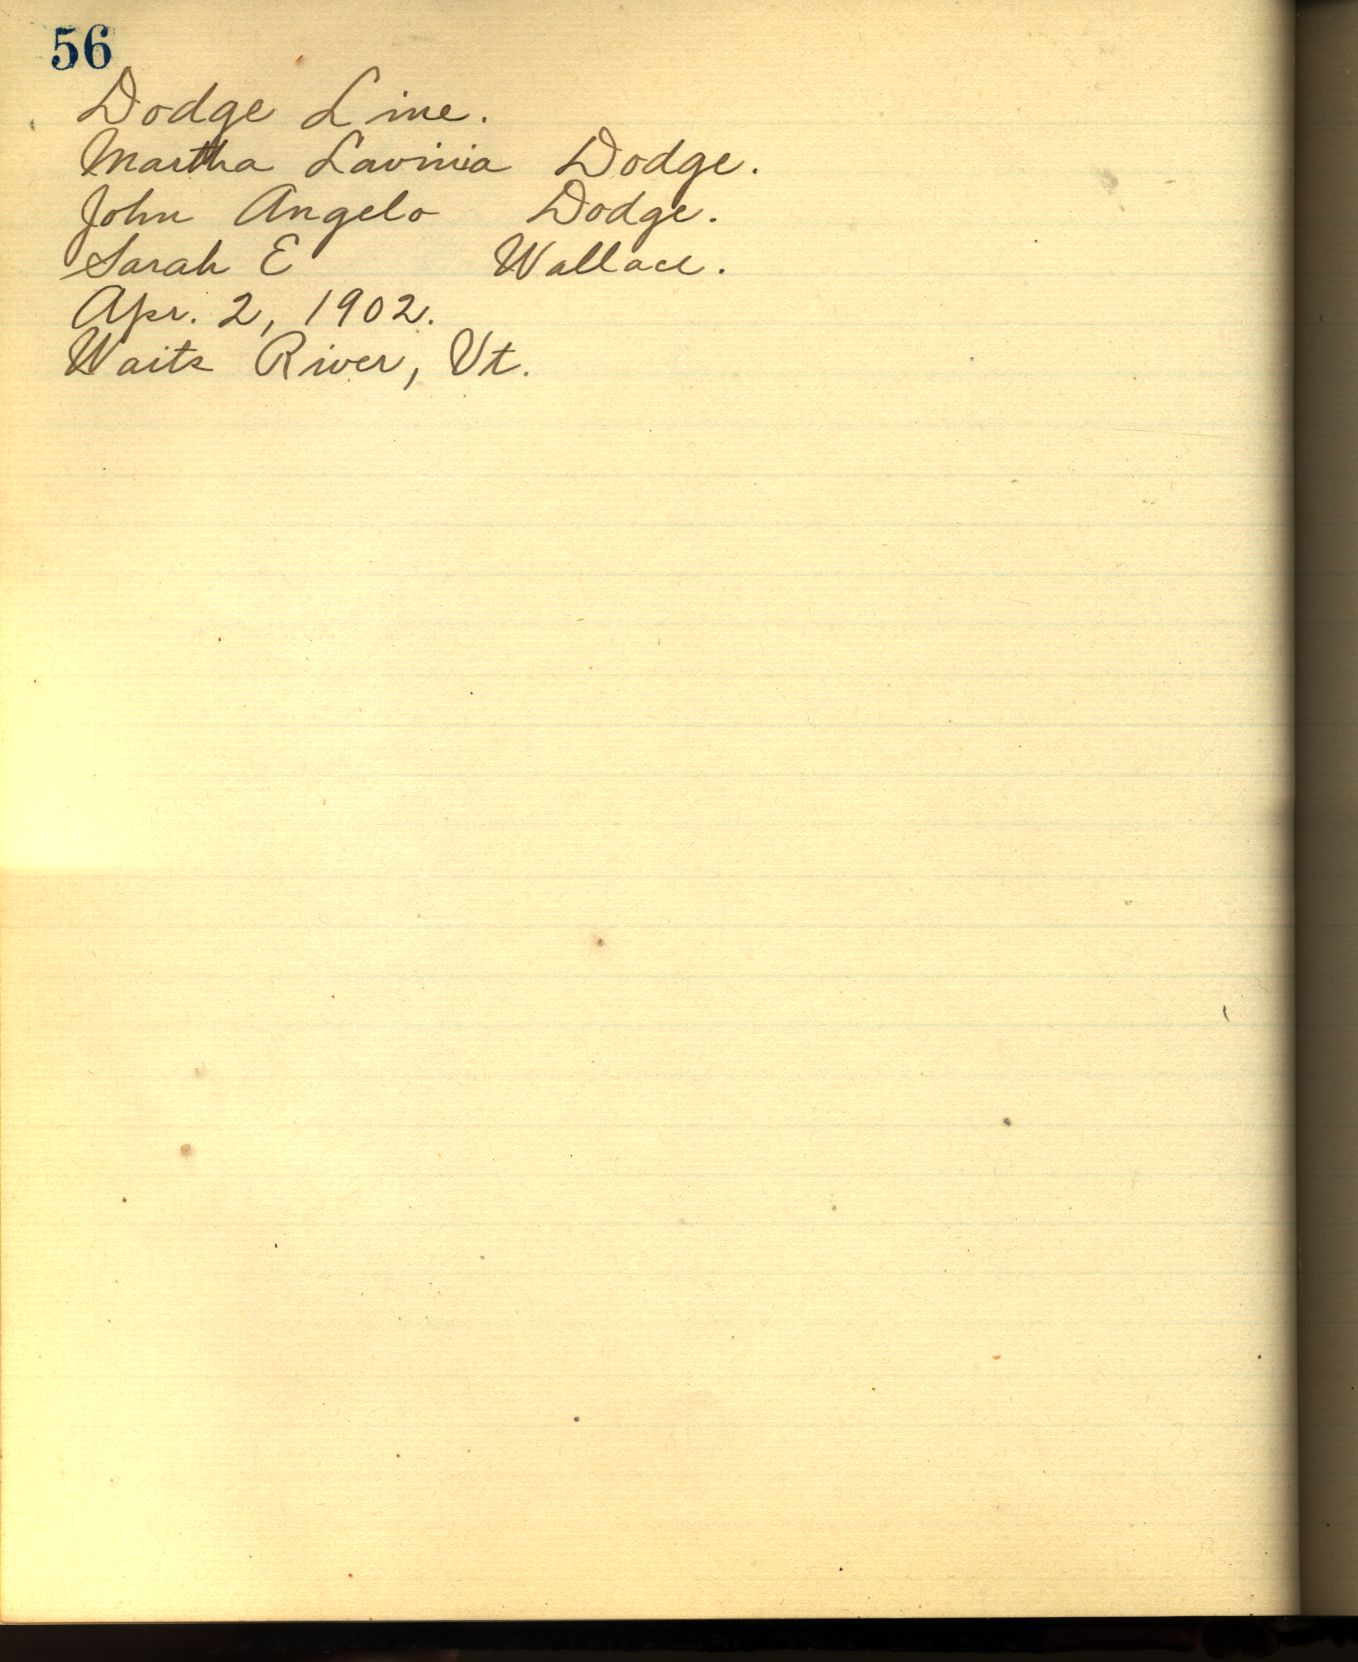 56
Dodge Line.
Martha Lavinia Dodge.
John Angelo Dodge.
Sarah E Wallace.
Apr. 2, 1902.
Waits River, Vt.